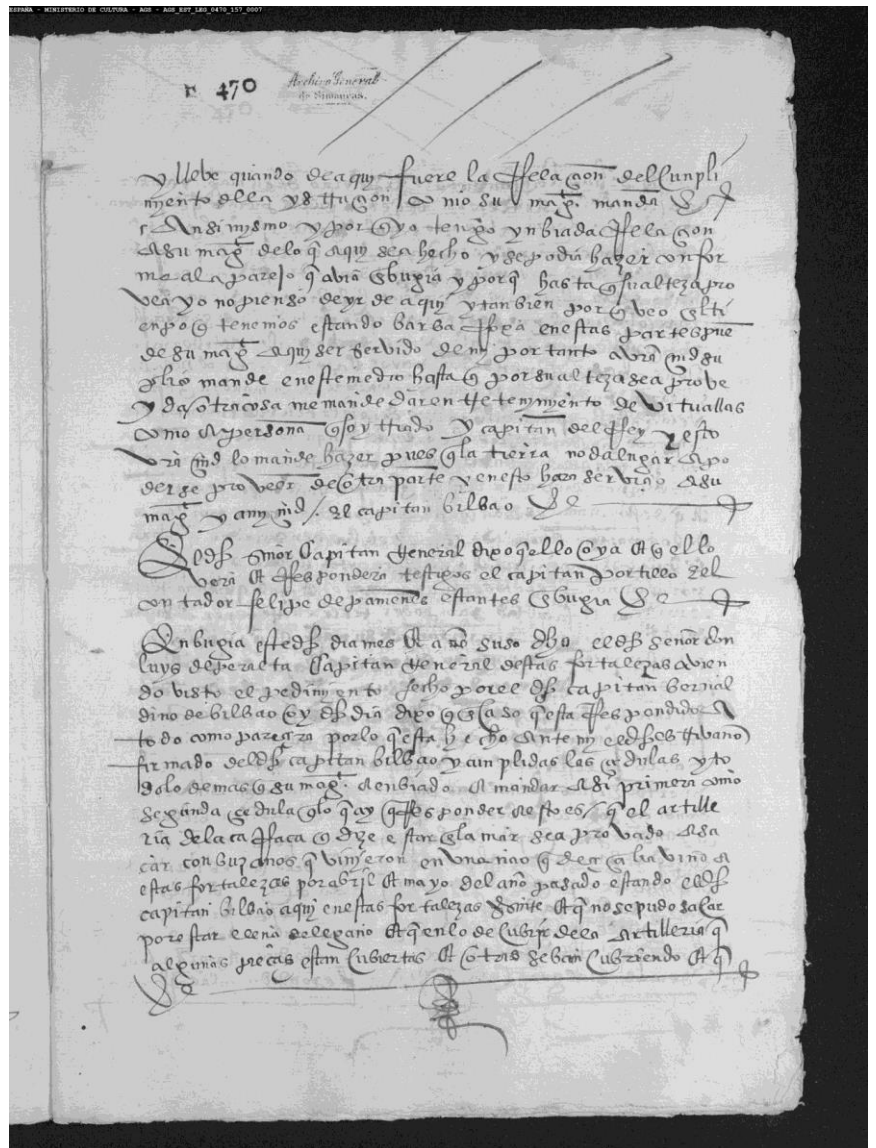 ESPAÑA - MINISTERIO DE CULTURA - AGS - AGS_EST_LEG_0470_157_0007
E 470
Archivo General
de Simancas.
y llebe quando de aqui fuere la Relaçon del cunpli
myento della y Rason como su magt. manda
Ansimysmo y por q yo tengo ynbiada Relaçon
a su magt de lo q aqui se a hecho y se podia hazer confor
me al aparejo q avia en bugia y porq hasta q su alteza pro
vea yo no pienso de yr de aqui y tanbien por q veo el ti
enpo q tenemos estando barba Roxa en estas partes pue
de su magt aqui ser servido de my por tanto a vra md su
plico mande en este medio hasta q por su alteza sea prove
yda otra cosa me mande dar entretenymiento de vituallas
como a persona q soy criado y capitan del Rey y esto
vra md lo mande hazer pues q la tierra no da lugar a po
der se proveer de otra parte y en esto hara serviçio a su
magt y a my md /. el capitan bilbao
El dho señor capitan general dixo q ello oya et q ello
vera et Respondera testigos el capitan portillo y el
contador felipe de pamenes estantes en bugia
En bugia este dho dia mes et año suso dho el dho señor don
luys de peralta capitan general destas fortalezas avien
do visto el pedimyento fecho por el dho capitan bernal
dino de bilbao oy dho dia dixo q en caso q esta Respondido a
todo como pareçera por lo q esta hecho ante my el dho escrivano
firmado del dho capitan bilbao y cunplidas las çedulas y to
do lo demas q su magt. a enbiado a mandar asi primera como
segunda çedula q lo q ay q Responder a esto es / q el artille
ria de la caRaca q dize estar en la mar se a provado a sa
car con buzanos q vinyeron en una nao q de caliz vino a
estas fortalezas por abril et mayo del año pasado estando el dho
capitan bilbao aqui en estas fortalezas et q no se pudo sacar
por estar llena de legano et q en lo de cubrir de la artilleria q
algunas pieças estan cubiertas et otras se ban cubriendo et q